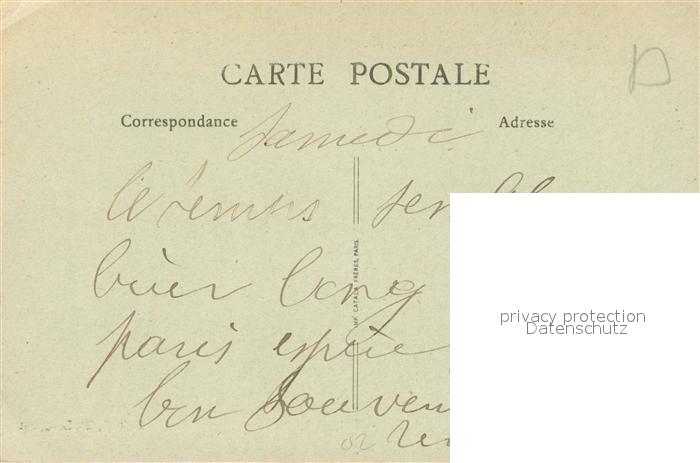 CARTE POSTALE
Correspondance
Adresse
Samedi
le temps
bien long
paris espère
bon Souven
IMP. CATALA FRÈRES, PARIS
privacy protection
Datenschutz
D